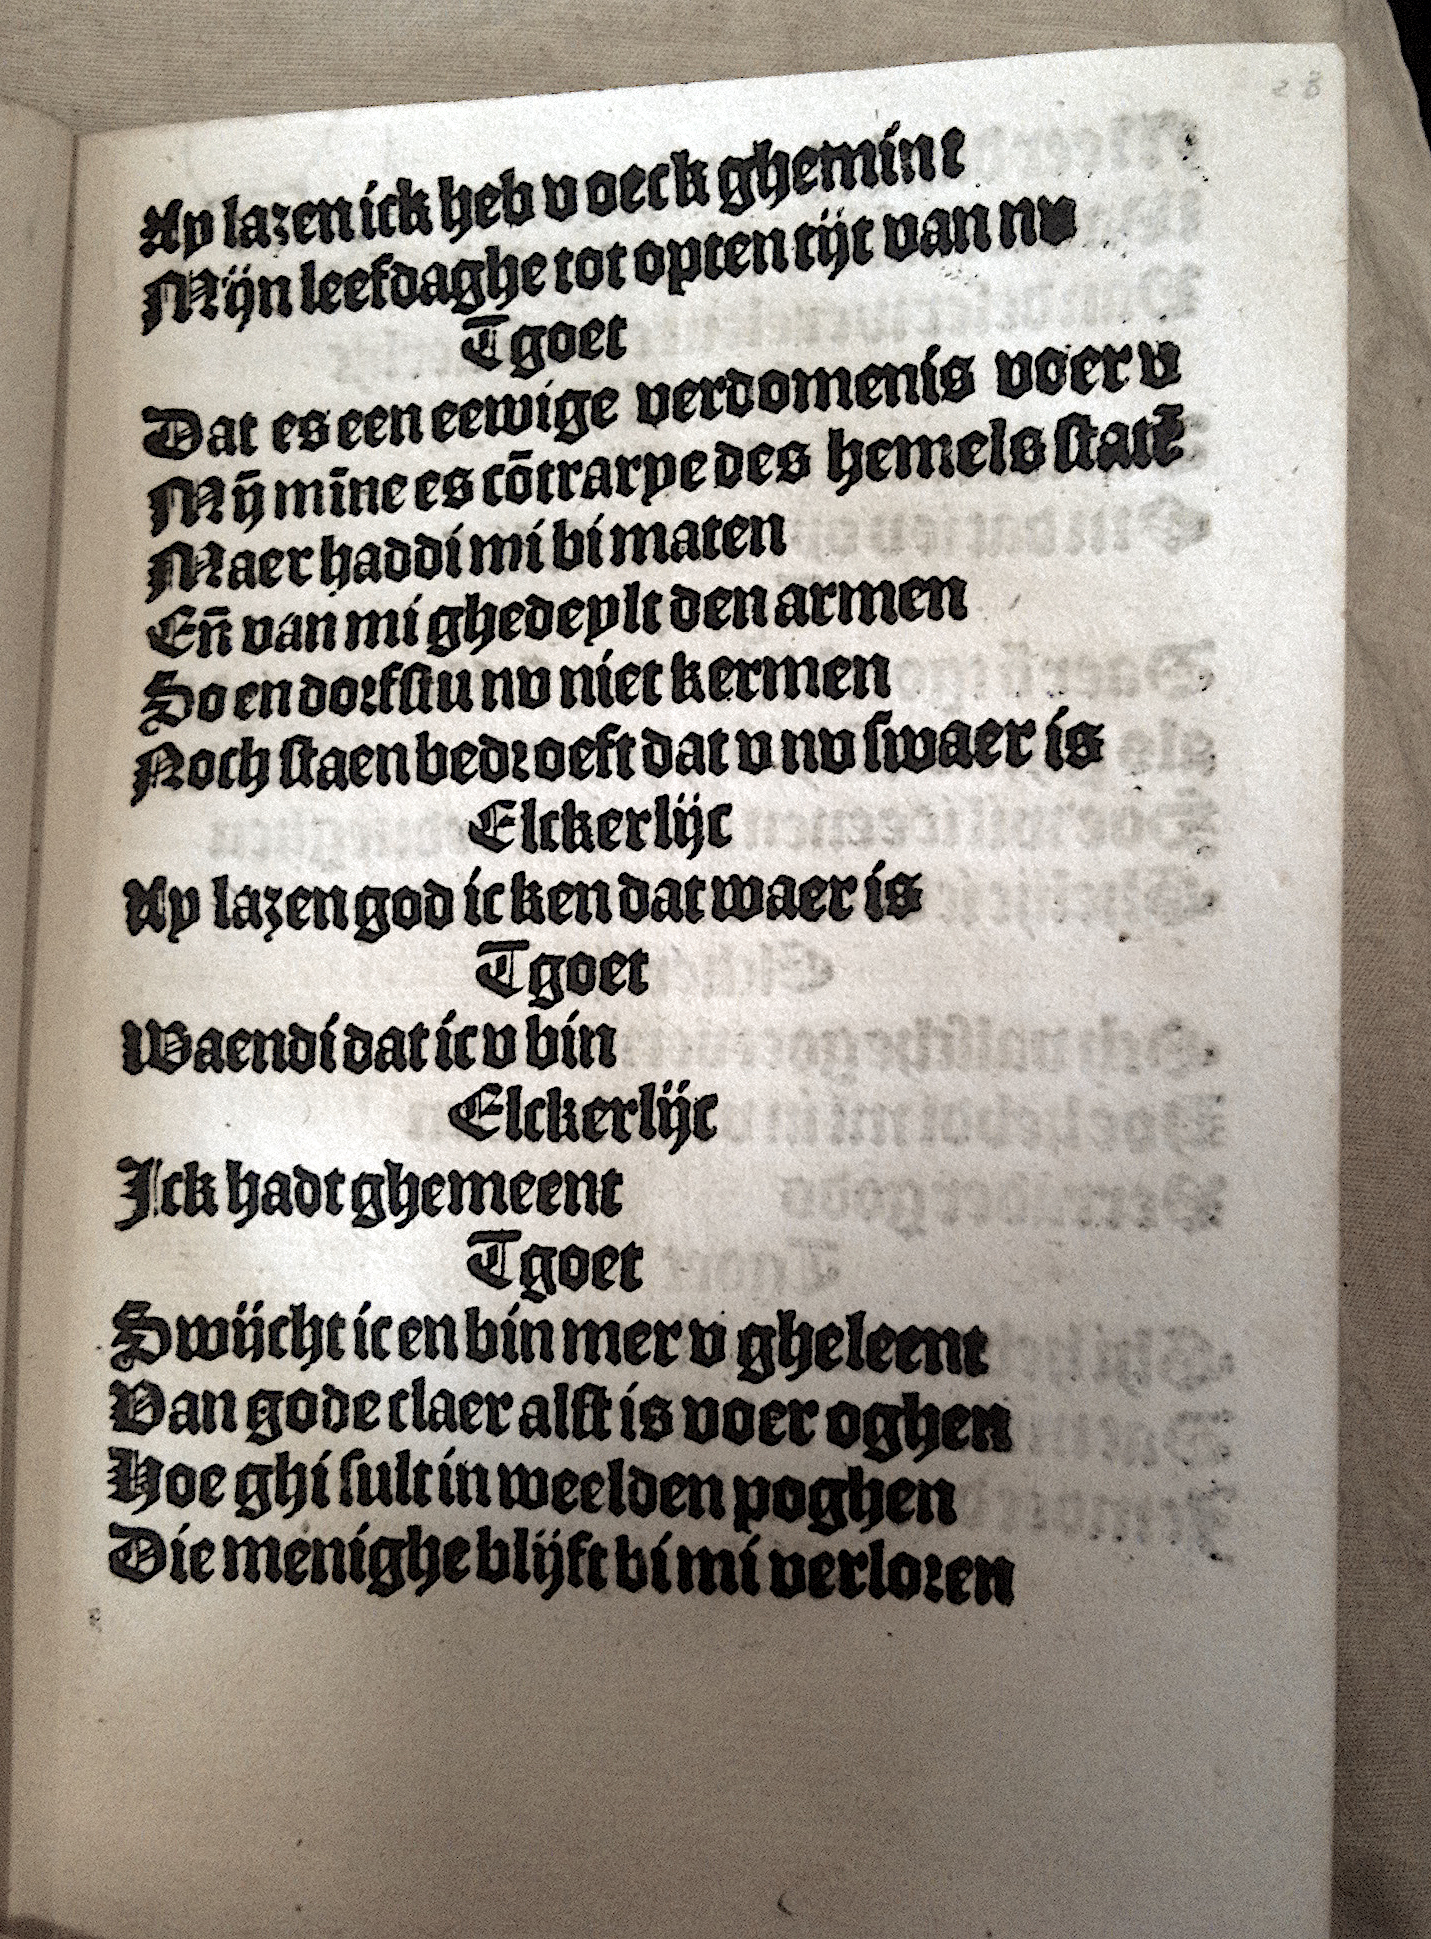 Ay lazen ick heb v oeck ghemint
Mijn leefdaghe tot opten tijt van nv
Tgoet
Dat es een eewige verdomenis voer v
Mȳ mīne es cōtrarye des hemels statē
Maer haddi mi bi maten
Eñ van mi ghedeylt den armen
So en dorfstu nv niet kermen
Noch staen bedroeft dat v nv swaer is
Elckerlijc
Ay lazen god ic ken dat waer is
Tgoet
Waendi dat ic v bin
Elckerlijc
Ick hadt ghemeent
Tgoet
Swijcht ic en bin mer v gheleent
Van gode claer alst is voer oghen
Hoe ghi sult in weelden poghen
Die menighe blijft bi mi verloren